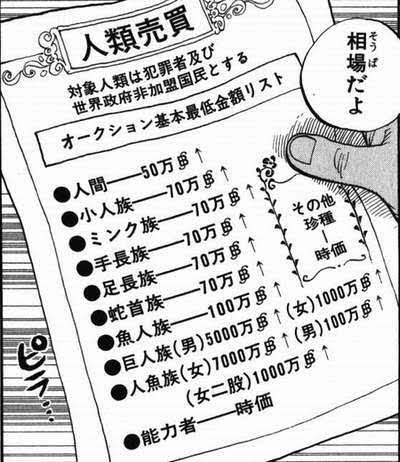 人類売買
対象人類は犯罪者及び
世界政府非加盟国民とする
オークション基本最低金額リスト
●人間——50万฿↑
●小人族——70万฿↑
●ミンク族——70万฿↑
●手長族——70万฿↑
●足長族——70万฿↑
●蛇首族——70万฿↑
●魚人族——100万฿↑
●巨人族(男)5000万฿↑(女)1000万฿↑
●人魚族(女)7000万฿↑(男)100万฿↑
(女二股)1000万฿↑
●能力者——時価
その他
珍種
|
時価
相場だよ
そうば
ピラ…